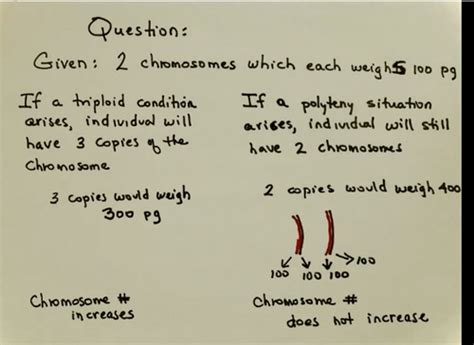 Question:
Given: 2 chromosomes which each weighs 100 pg
If a triploid condition
arises, individual will
have 3 copies of the
Chromosome
3 copies would weigh
300 pg
Chromosome #
increases
If a polyteny situation
arises, individual will still
have 2 chromosomes
2 copies would weigh 400
100 100 100 100
Chromosome #
does not increase